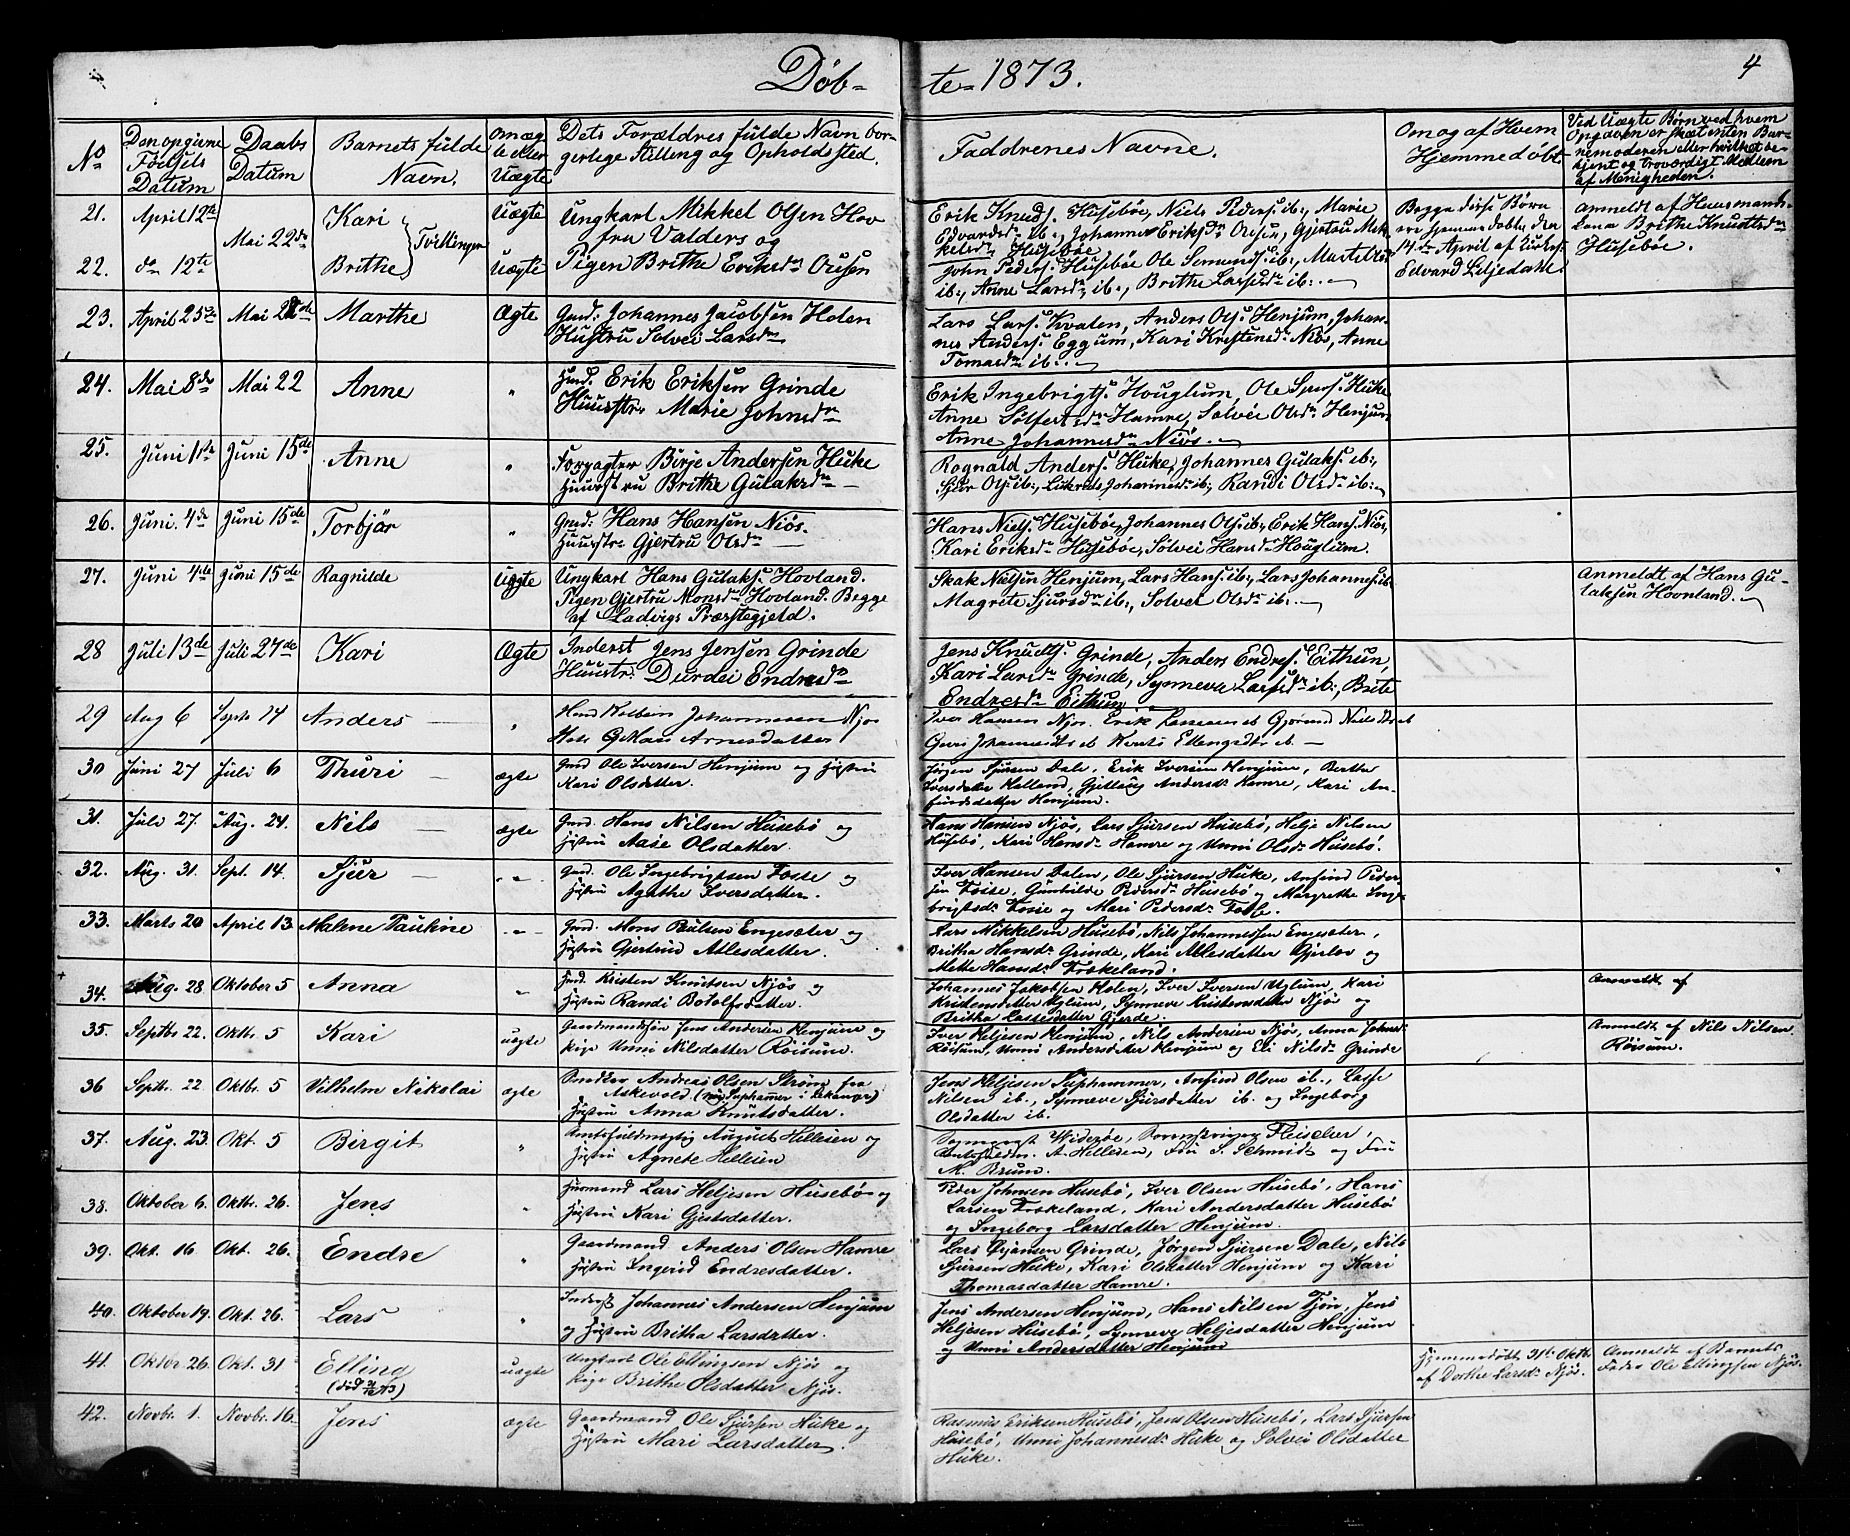 Døb- te- 1873. 4
No | Den opgivne Fødsels Datum | Daabs Datum | Barnets fulde Navn. | Om ægte eller Uægte | Dets Forældres fulde Navn borgerlige Stilling og Opholdssted. | Faddrenes Navne. | Om og af Hvem Hjemmedøbt | Ved Uægte Børn ved hvem Opgaven er skæt enten Barnemoderen eller hvilket be-kjent og troværdigt Medlem af Menigheden.
21. April 12te Kari Uægte Ungkarl Mikkel Olsen Hov
Mai 22de Tvillinger fra Valders og
22. do 12te Brithe Uægte Pigen Brithe Eriksdr Ousen
Erik Knuds. Husebøe, Niels Peders. ib:, Marie
Edvardsdr ib:, Johannes Eriksdr Ousen, Gjertru Mik-
kelsdr Husebøe
John Peders. Husebøe Ole Semunds. ib:,
ib:, Anne Larsdr ib:, Brithe Larsesdr ib:.
Begge disse Børn
ere hjemmedøbte den
14de April af
Edvard Liljedahl.
Anmeldt af Huusmands-
kona Brithe Knudtsdr
Husebøe.
23. April 25de Mai 22de Marthe Ægte Gmd: Johannes Jacobsen Holen
Hustru Solvei Larsdr
Lars Lars. Kvalen, Anders Ols. Henjum, Johan-
nes Anders. Eggum, Kari Kristensdr Niøs, Anne
Tomasdr ib:.
24. Mai 8de Mai 22 Anne " Gmd. Erik Eriksen Grinde
Huustr. Marie Johnsdr
Erik Ingebrigts. Houglum, Ole Huke
Anne Solfestsdr Hamre, Solvei Olsdr Henjum
Anne Johannesdr Niøs.
25. Juni 1ste Juni 15de Anne " Forpagter Birje Andersen Huke
Huustru Brithe Gulaksdr
Rognald Anders. Huke, Johannes Gulaks. ib:,
Sjur Ols. ib:, Johannesdr ib:, Randi Olsdr ib:
26. Juni. 4de Juni 15de Torbjør " Gmd: Hans Hansen Niøs.
Huustr. Gjertru Olsdr
Hans Niels. Husebøe, Johannes Ols. ib:, Erik Hans. Niøs,
Kari Eriksdr Husebøe, Solvei Hansdr Houglum.
27. Juni 4de Juni 15de Ragnilde Uægte Ungkarl Hans Gulaks. Hovland.
Pigen Gjertru Monsdr Hovland. Begge
af Ladvigs Præstegjeld.
Skak Nielsen Henjum, Lars Hans. ib:, Lars Johannes. ib:
Magrete Sjursdr ib:, Solvei Olsdr ib:.
Anmeldt af Hans Gu-
laksen Hovnland.
28 Juli 13de Juli 27de Kari Ægte Inderst Jens Jensen Grinde
Huustr. Durdei Endresdr
Jens Knudts. Grinde, Anders Endres. Eithun,
Kari Larsdr Grinde, Synneva Larsesdr ib:, Brite
Endresdr Eithun.
29 Aug 6 Sept 14 Anders " Kolbein Johannesen Njøs
Arnesdatter
Iver Hansen Njøs. Erik
Guri Johannesdtr ib
30 Juni 27 Juli 6 Thuri ægte Gmd Ole Iversen Henjum og Hustru
Kari Olsdatter.
Jørgen Sjursen Dale, Erik Iversen Henjum, Bertha
Iversdatter Hatland, Gjettrug Andersdr Hamre, Kari An-
findsdatter Henjum.
31. Juli 27. Aug. 24. Nils ægte Gmd. Hans Nilsen Husebø og
Hustru Aase Olsdatter.
Hans Hansen Njøs, Lars Sjursen Husebø, Helje Nilsen
Husebø, Kari Hansdr Hamre og Unni Olsdr Husebø.
32. Aug. 31. Sept. 14. Sjur " Gmd. Ole Ingebrigtsen Fosse og
Hustru Agathe Iversdatter.
Iver Hansen Dalen, Ole Sjursen Huke, Anfind Peder-
sen Fosse, Gunhilde Pedersdr Husebø og Margrethe Inge-
brigtsdr Fosse og Mari Pedersdr Fosse.
33. Marts 20 April 13 Malene Pauline " Gmd. Mons Paulsen Engesæter og
Hustru Gjertrud Atlesdatter.
Lars Mikkelsen Husebø, Nils Johannessen Engesæter,
Britha Hansdr Grinde, Kari Atlesdatter Gjerløv og
Mette Hansdr Frøkeland.
34. Aug. 28. Oktober 5 Anna " Gmd. Kristen Knutsen Njøs og
Hustru Randi Botolfsdatter.
Johannes Jakobsen Holen, Iver Iversen Uglum, Kari
Kristensdatter Uglum, Synneve Kristensdatter Njøs og
Britha Lassesdatter Gjerde.
Anmeldt af
35. Septbr 22. Oktbr. 5 Kari uægte Gaardmandssøn Jens Andersen Henjum og
Pige Unni Nilsdatter Røisum.
Iver Heljesen Henjum, Nils Andersen Njøs, Anna Johnsdr
Røisum, Unni Andersdatter Henjum og Eli Nilsdr Grinde
Anmeldt af Nils Nilsen
Røisum.
36 Septbr. 22. Oktbr. 5 Vilhelm Nikolai ægte Andreas Olsen Strøm fra
Askevold (nu Suphamer i Leikanger)
Hustru Anna Knutsdatter.
Jens Heljesen Suphammer, Anfind Olsen ib., Lasse
Nilsen ib., Synneve Sjursdatter ib. og Ingeborg
Olsdatter ib.
37. Aug. 23. Okt. 5 Birgit " Amtsfuldmægtig August Hellesen og
Hustru Agnete Hellesen
Sogneprest Widerøe, Sorenskriver Fleischer,
A. Hellesen, Fru S. Schmidt og Fru
M. Bruun.
38. Oktober 6. Oktbr. 26. Jens " Husmand Lars Heljesen Husebø og
Hustru Kari Gjestsdatter.
Peder Johnsen Husebø, Iver Olsen Husebø, Hans
Larsen Frøkeland, Kari Andersdatter Husebø
og Ingeborg Larsdatter Henjum.
39. Okt. 16. Okt. 26. Endre " Gaardmand Anders Olsen Hamre
Hustru Ingerid Endresdatter.
Lars Grinde, Jørgen Sjursen Dale, Nils
Sjursen Huke, Kari Olsdatter Henjum og Kari
Thomasdatter Hamre.
40. Oktober 19. Okt. 26. Lars " Inderst Johannes Andersen Henjum
og Hustru Britha Larsdatter.
Jens Andersen Henjum, Hans Nilsen Tjøn, Jens
Heljesen Husebø, Synneve Heljesdatter Henjum
og Unni Andersdatter Henjum
41. Oktbr. 26. Okt. 31 Elling uægte Ungkarl Ole Ellingsen Njøs og
(død 73) Pige Brithe Olsdatter Njøs.
Hjemmedøbt 31te Oktb.
af Dorthe Larsdr Njøs.
Anmeldt af Barnets
Fader Ole Ellingsen Njøs.
42. Novbr. 1. Novbr. 16. Jens ægte Gaardmand Ole Sjursen Huke og
Hustru Mari Larsdatter.
Rasmus Eriksen Husebø, Jens Olsen Husebø, Lars Sjursen
Husebø, Unni Johannesdr Huke og Solvei Olsdatter
Huke.